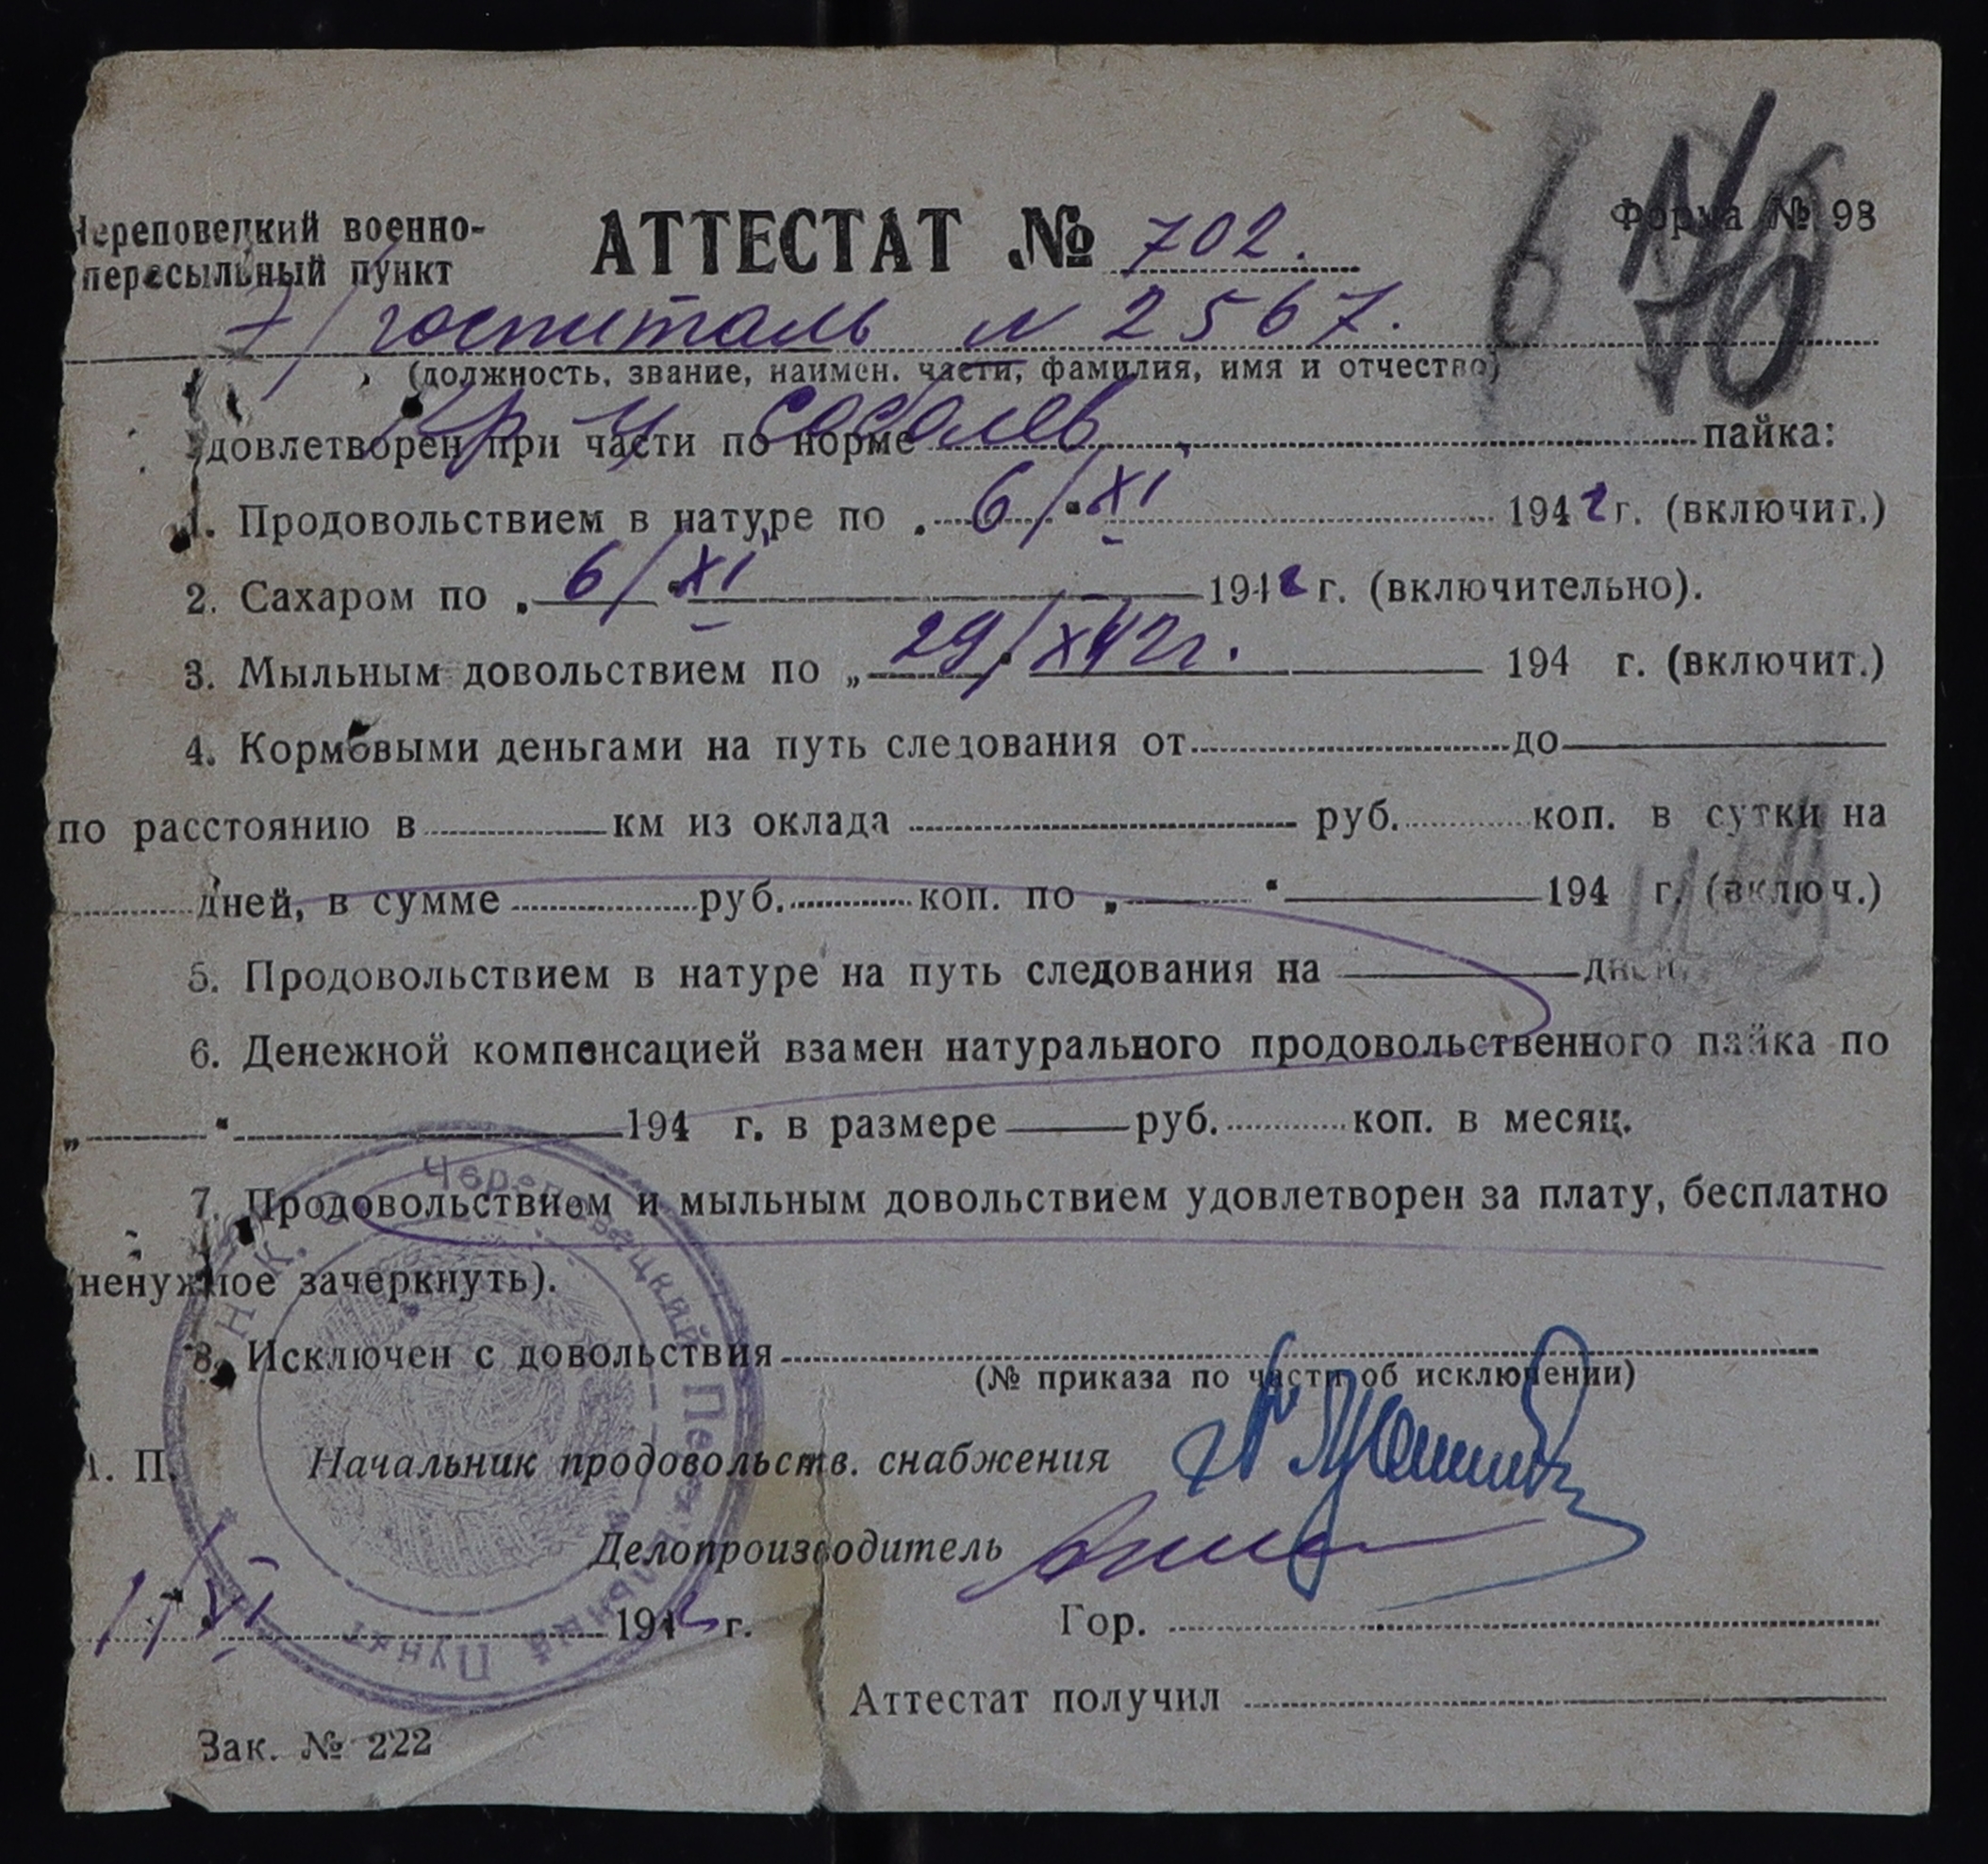 Череповецкий военно-
пересыльный пункт
АТТЕСТАТ № 702.
Форма № 98
госпиталь N 2567.
(должность, звание, наимен. части, фамилия, имя и отчество)
кр-ц Соболев
удовлетворен при части по норме пайка:
1. Продовольствием в натуре по „6/XI“ 1942 г. (включит.)
2. Сахаром по „6/XI“ 1942 г. (включительно).
3. Мыльным довольствием по „29/X 42 г. 194 г. (включит.)
4. Кормовыми деньгами на путь следования от до
по расстоянию в км из оклада руб. коп. в сутки на
дней, в сумме руб. коп. по „ “ 194 г. (включ.)
5. Продовольствием в натуре на путь следования на дней.
6. Денежной компенсацией взамен натурального продовольственного пайка по
„ “ 194 г. в размере руб. коп. в месяц.
7. Продовольствием и мыльным довольствием удовлетворен за плату, бесплатно
(ненужное зачеркнуть).
8. Исключен с довольствия
(№ приказа по части об исключении)
М. П. Начальник продовольств. снабжения
Делопроизводитель
XI 1942 г. Гор.
Аттестат получил
Зак. № 222
Н. К. О. Череповецкий Пересыльный Пункт